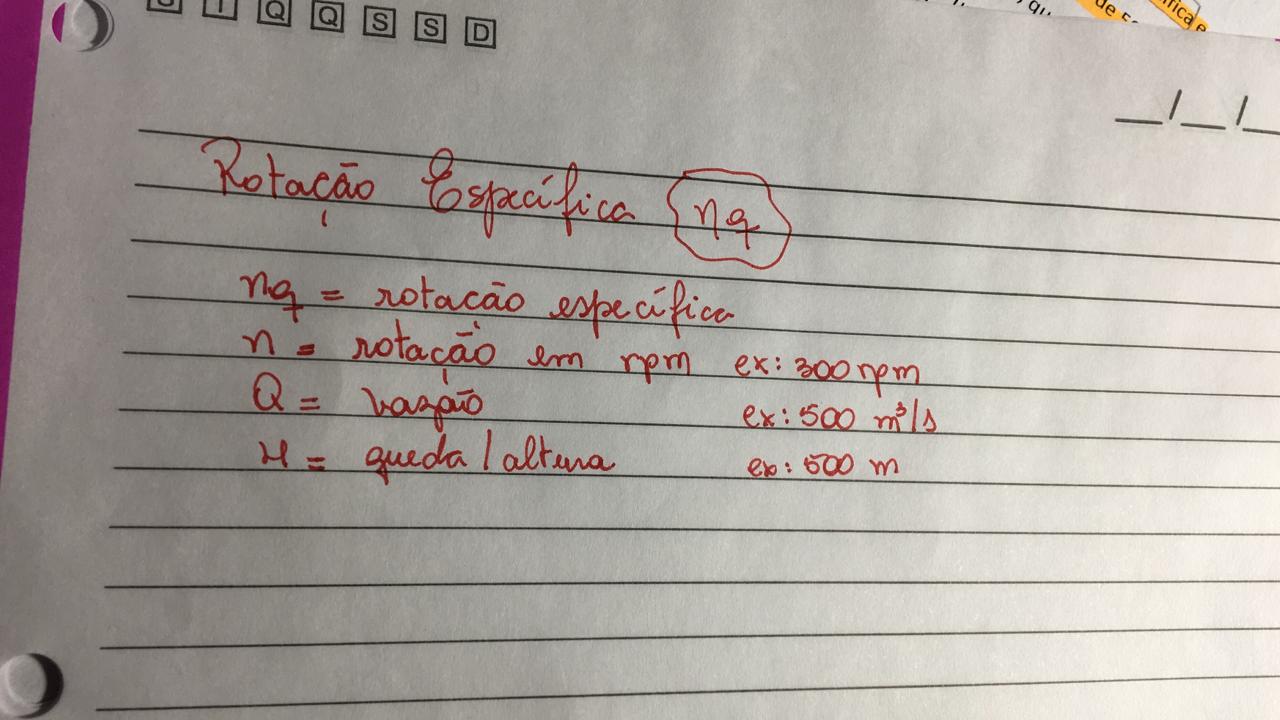 T Q Q S S D
__/__/__
Rotação Específica nq
nq = rotacão específica
n = rotação em rpm ex: 300 rpm
Q = vazão ex: 500 m³/s
H = queda / altura ex: 500 m